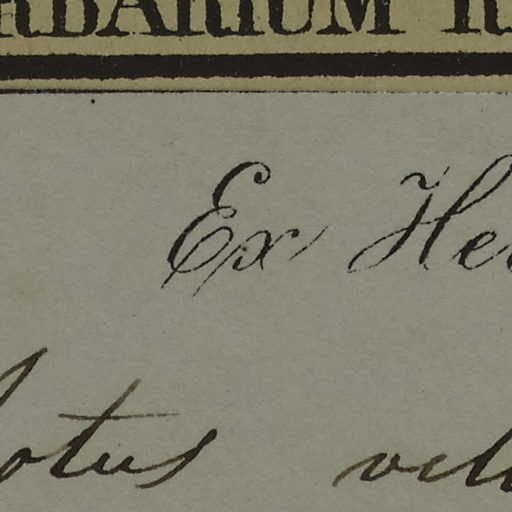 RBARIUM R
Ex He
lotus vil